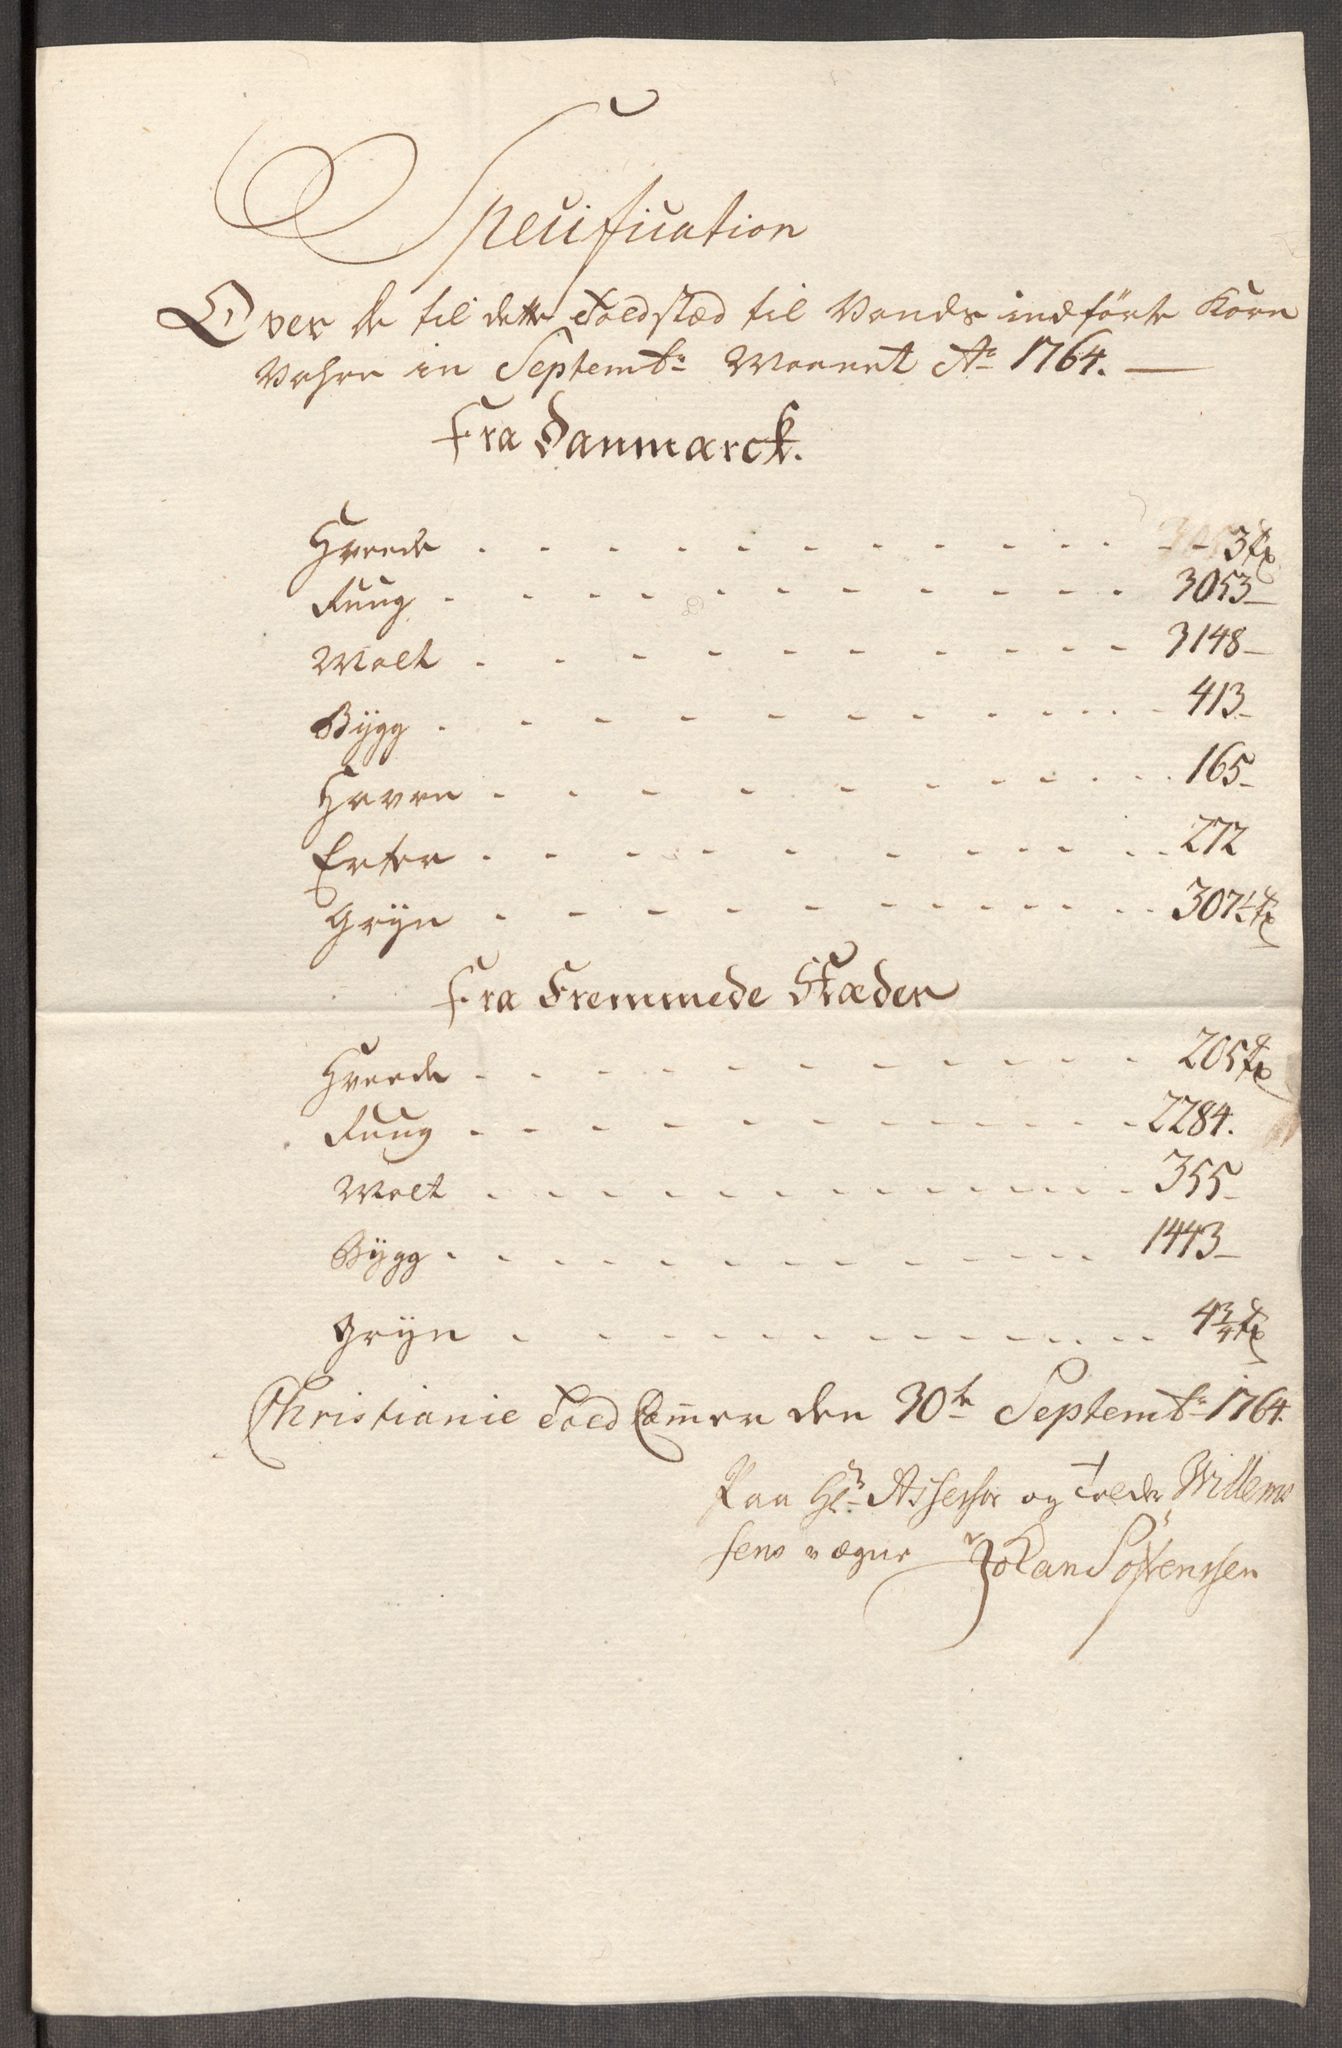 Specification
Over de til dette Toldstæd til Vands indførte Korn
Vahre in Septembr Maanet Ao 1764.
Fra Danmarck.
Hvede - - - 3 tr
Ruug - - - 3053 -
Malt - - - 3148 -
Bÿgg - - - 413 -
Havre - - - 165 -
Erter - - - 272
Grÿn - - - 307 1/2 tr
Fra Fremmede Stæder
Hvede - - - 205 tr
Ruug - - - 2284.
Malt - - - 355 -
Bÿgg - - - 1443 -
Grÿn - - - 4 3/4 tr
Christianie Told Cam̅er den 30te Septembr 1764.
Paa Hr Assessor og Tolder Willem
sens vegne Johan Sørenssen